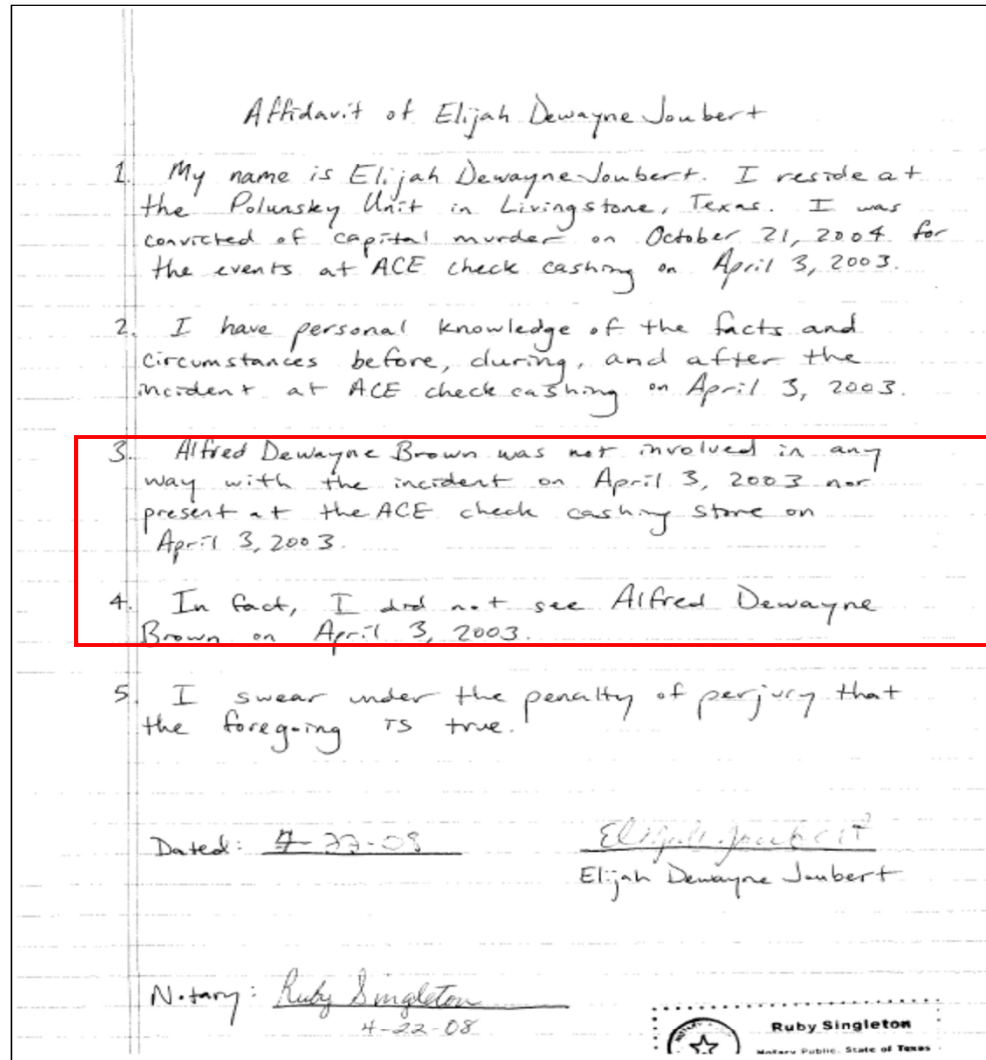 Affidavit of Elijah Dewayne Joubert
1. My name is Elijah Dewayne Joubert. I reside at
the Polunsky Unit in Livingstone, Texas. I was
convicted of capital murder on October 21, 2004 for
the events at ACE check cashing on April 3, 2003.
2. I have personal knowledge of the facts and
circumstances before, during, and after the
incident at ACE check cashing on April 3, 2003.
3. Alfred Dewayne Brown was not involved in any
way with the incident on April 3, 2003 nor
present at the ACE check cashing store on
April 3, 2003.
4. In fact, I did not see Alfred Dewayne
Brown on April 3, 2003.
5. I swear under the penalty of perjury that
the foregoing is true.
Dated: 4-22-08 Elijah Joubert
Elijah Dewayne Joubert
Notary: Ruby Singleton
4-22-08
Ruby Singleton
Notary Public, State of Texas